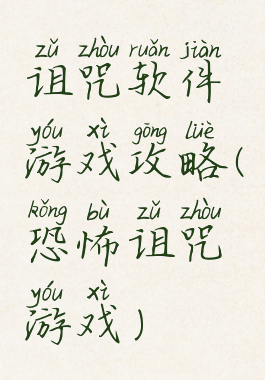 zǔ zhòu ruǎn jiàn
诅咒软件
yóu xì gōng lüè
游戏攻略(
kǒng bù zǔ zhòu
恐怖诅咒
yóu xì
游戏)